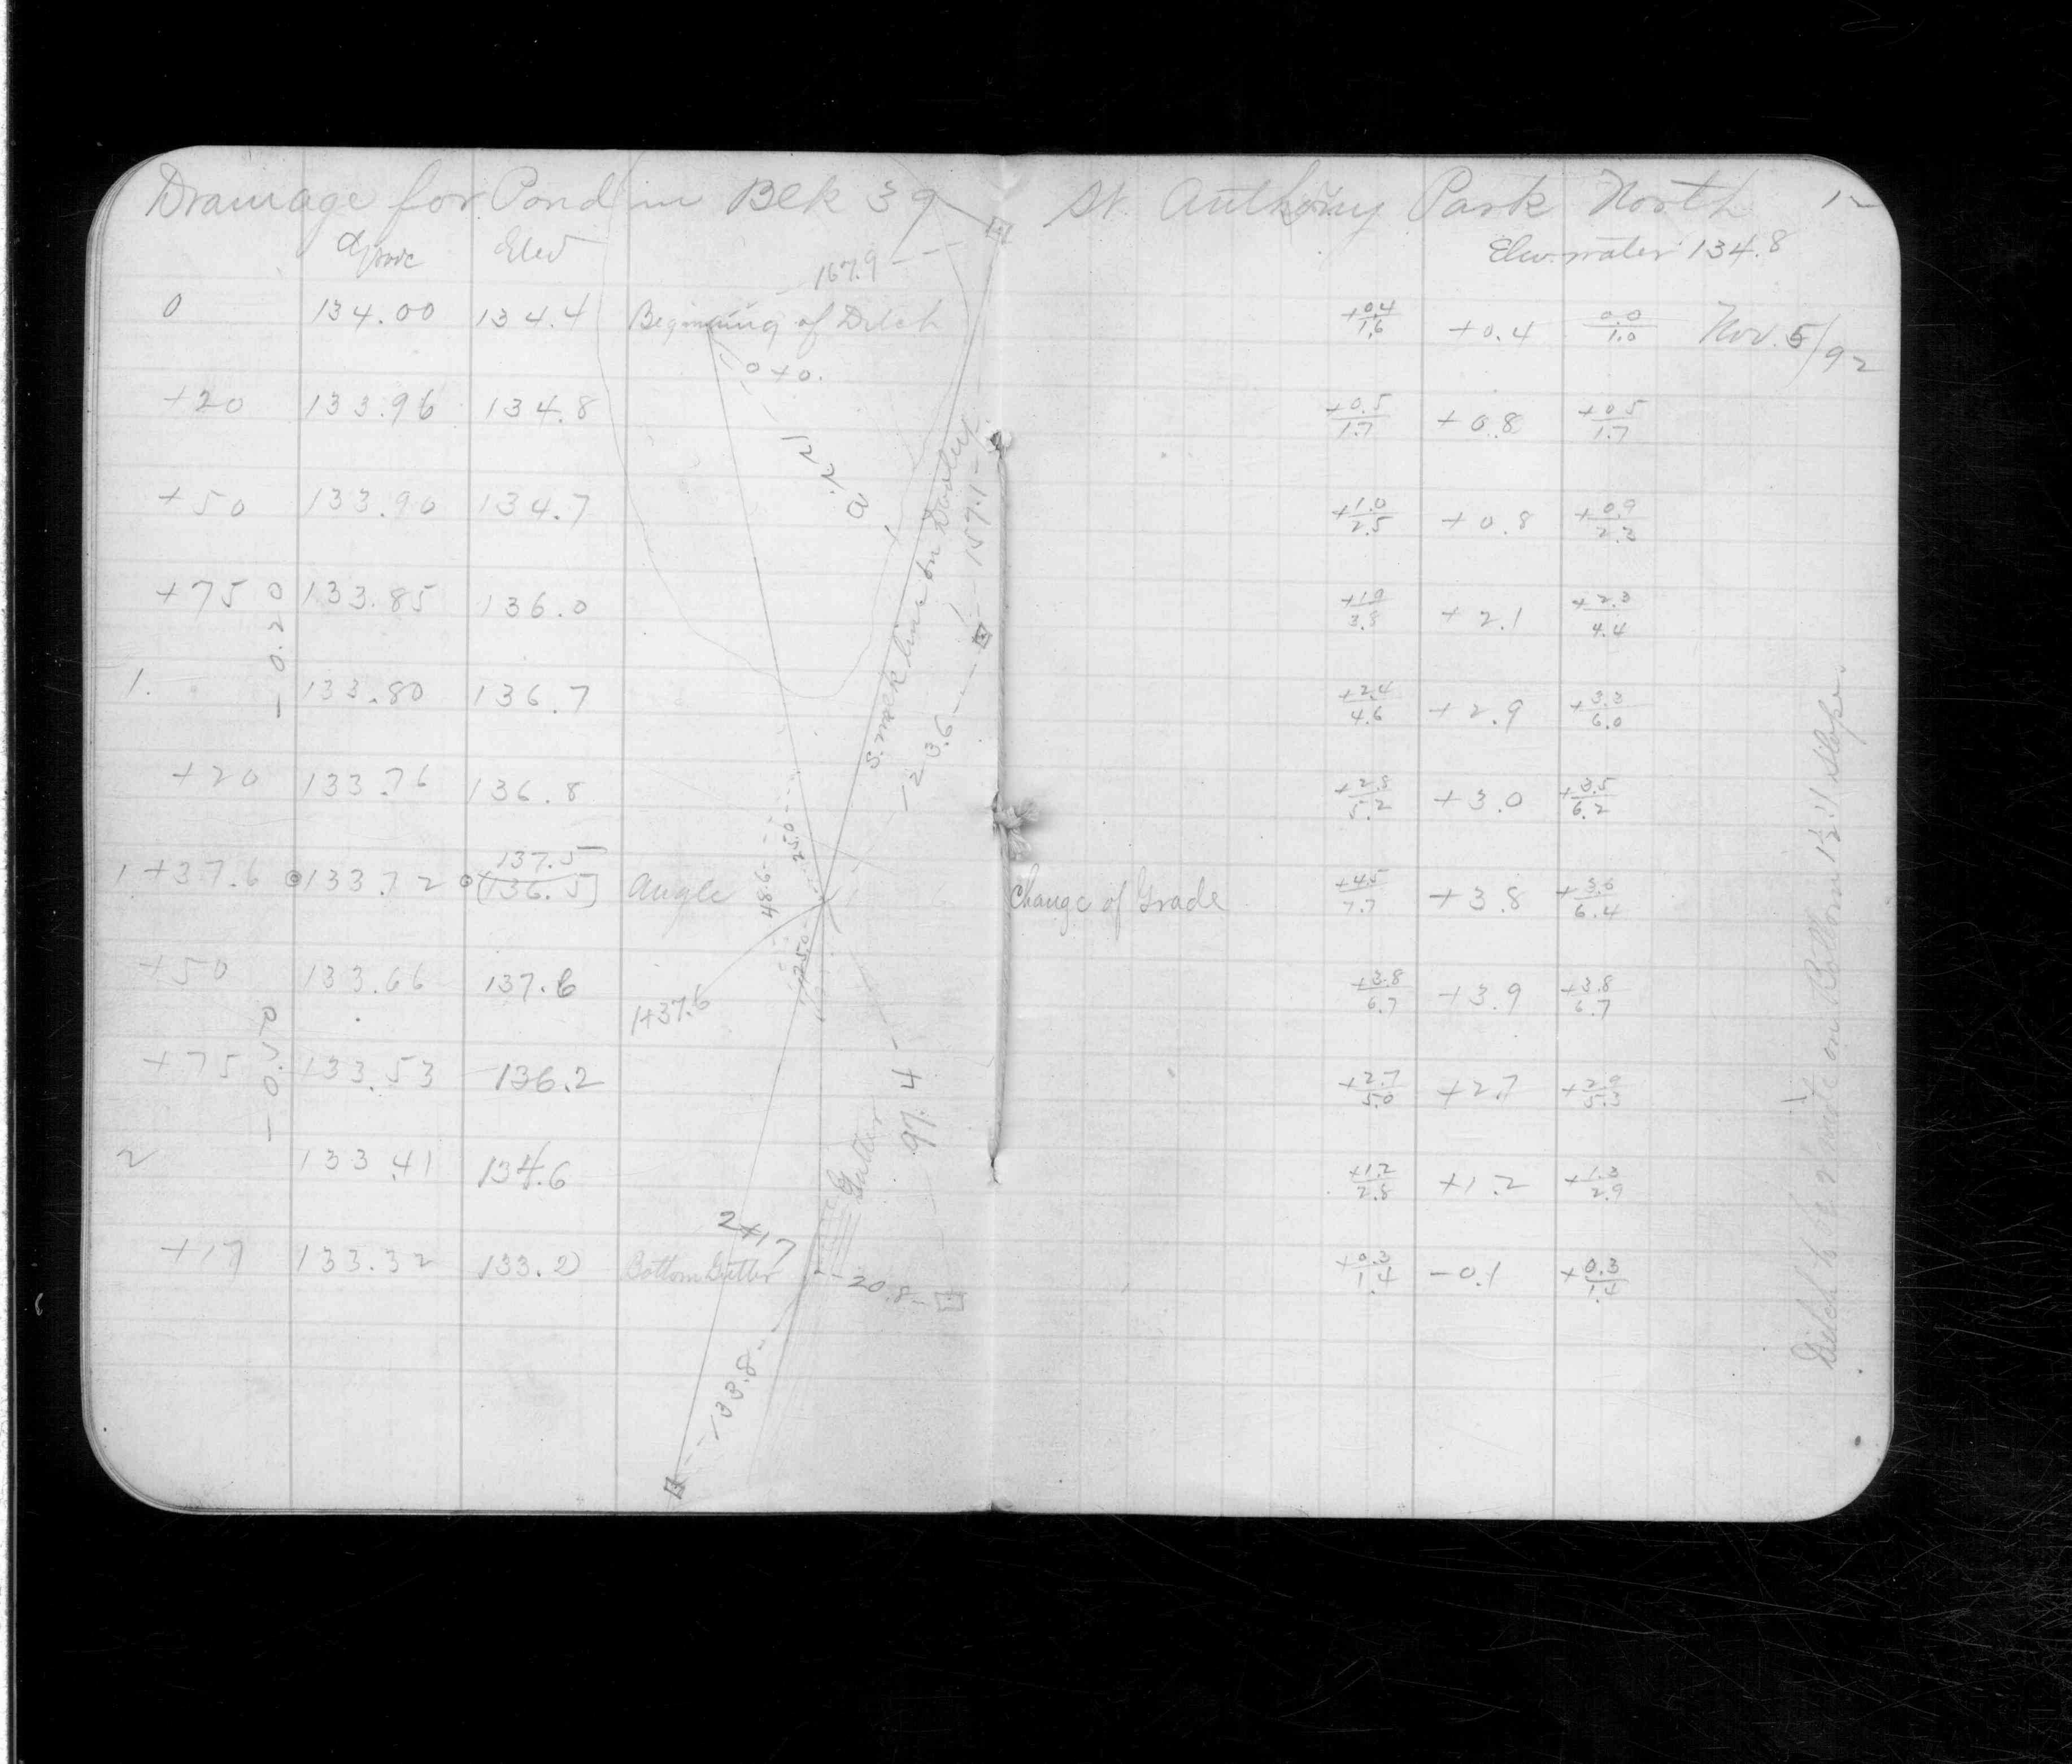 Drainage for Pond in Blk 39 St. Anthony Park North 12
Grade Elev Elev. water 134.8
167.9
0 134.00 134.4 Beginning of Ditch +0.4/1.6 +0.4 0.0/1.0 Nov. 5/92
0+0.
+20 133.96 134.8 +0.5/1.7 +0.8 +0.5/1.7
+50 133.90 134.7 +1.0/2.5 +0.8 +0.9/2.3
+75 133.85 136.0 +1.9/3.8 +2.1 +2.3/4.4
-0.20
1. 133.80 136.7 +2.4/4.6 +2.9 +3.3/6.0
+20 133.76 136.8 +2.8/5.2 +3.0 +3.5/6.2
137.5
1+37.6 133.72 [136.5] Angle Change of Grade +4.5/7.7 +3.8 +3.6/6.4
+50 133.66 137.6 +3.8/6.7 +3.9 +3.8/6.7
1+37.6
+75 133.53 136.2 +2.7/5.0 +2.7 +2.9/5.3
-0.50
2 133.41 134.6 +1.2/2.8 +1.2 +1.3/2.9
2+17
+17 133.32 133.2 Bottom Gutter +0.3/1.4 -0.1 +0.3/1.4
20.8
133.8
Gutter
97.4
48.6
25.0
25.0
23.6
157.1
line on
Ditch to be 2 on Bottom 1½:1 Slope.